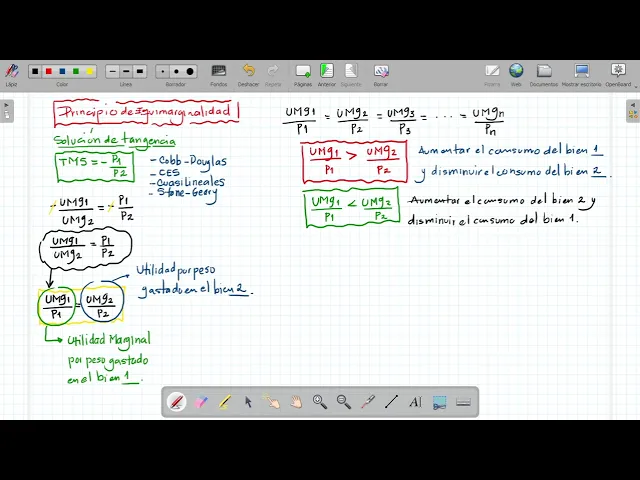 Lápiz
Color
Línea
Borrador
Fondos
Deshacer
Rehacer
Páginas
Anterior
Siguiente
Borrar
Web
Documentos
Mostrar escritorio
OpenBoard
Principio de Equimarginalidad
Solución de tangencia
TMS = - P1/P2
- Cobb-Douglas
- CES
- Cuasilineales
- Stone-Geary
- UMg1/UMg2 = - P1/P2
UMg1/UMg2 = P1/P2
UMg1/P1 = UMg2/P2
Utilidad por peso
gastado en el bien 2.
Utilidad Marginal
por peso gastado
en el bien 1.
UMg1/P1 = UMg2/P2 = UMg3/P3 = ... = UMgn/Pn
UMg1/P1 > UMg2/P2
Aumentar el consumo del bien 1
y disminuir el consumo del bien 2.
UMg1/P1 < UMg2/P2
Aumentar el consumo del bien 2 y
disminuir el consumo del bien 1.